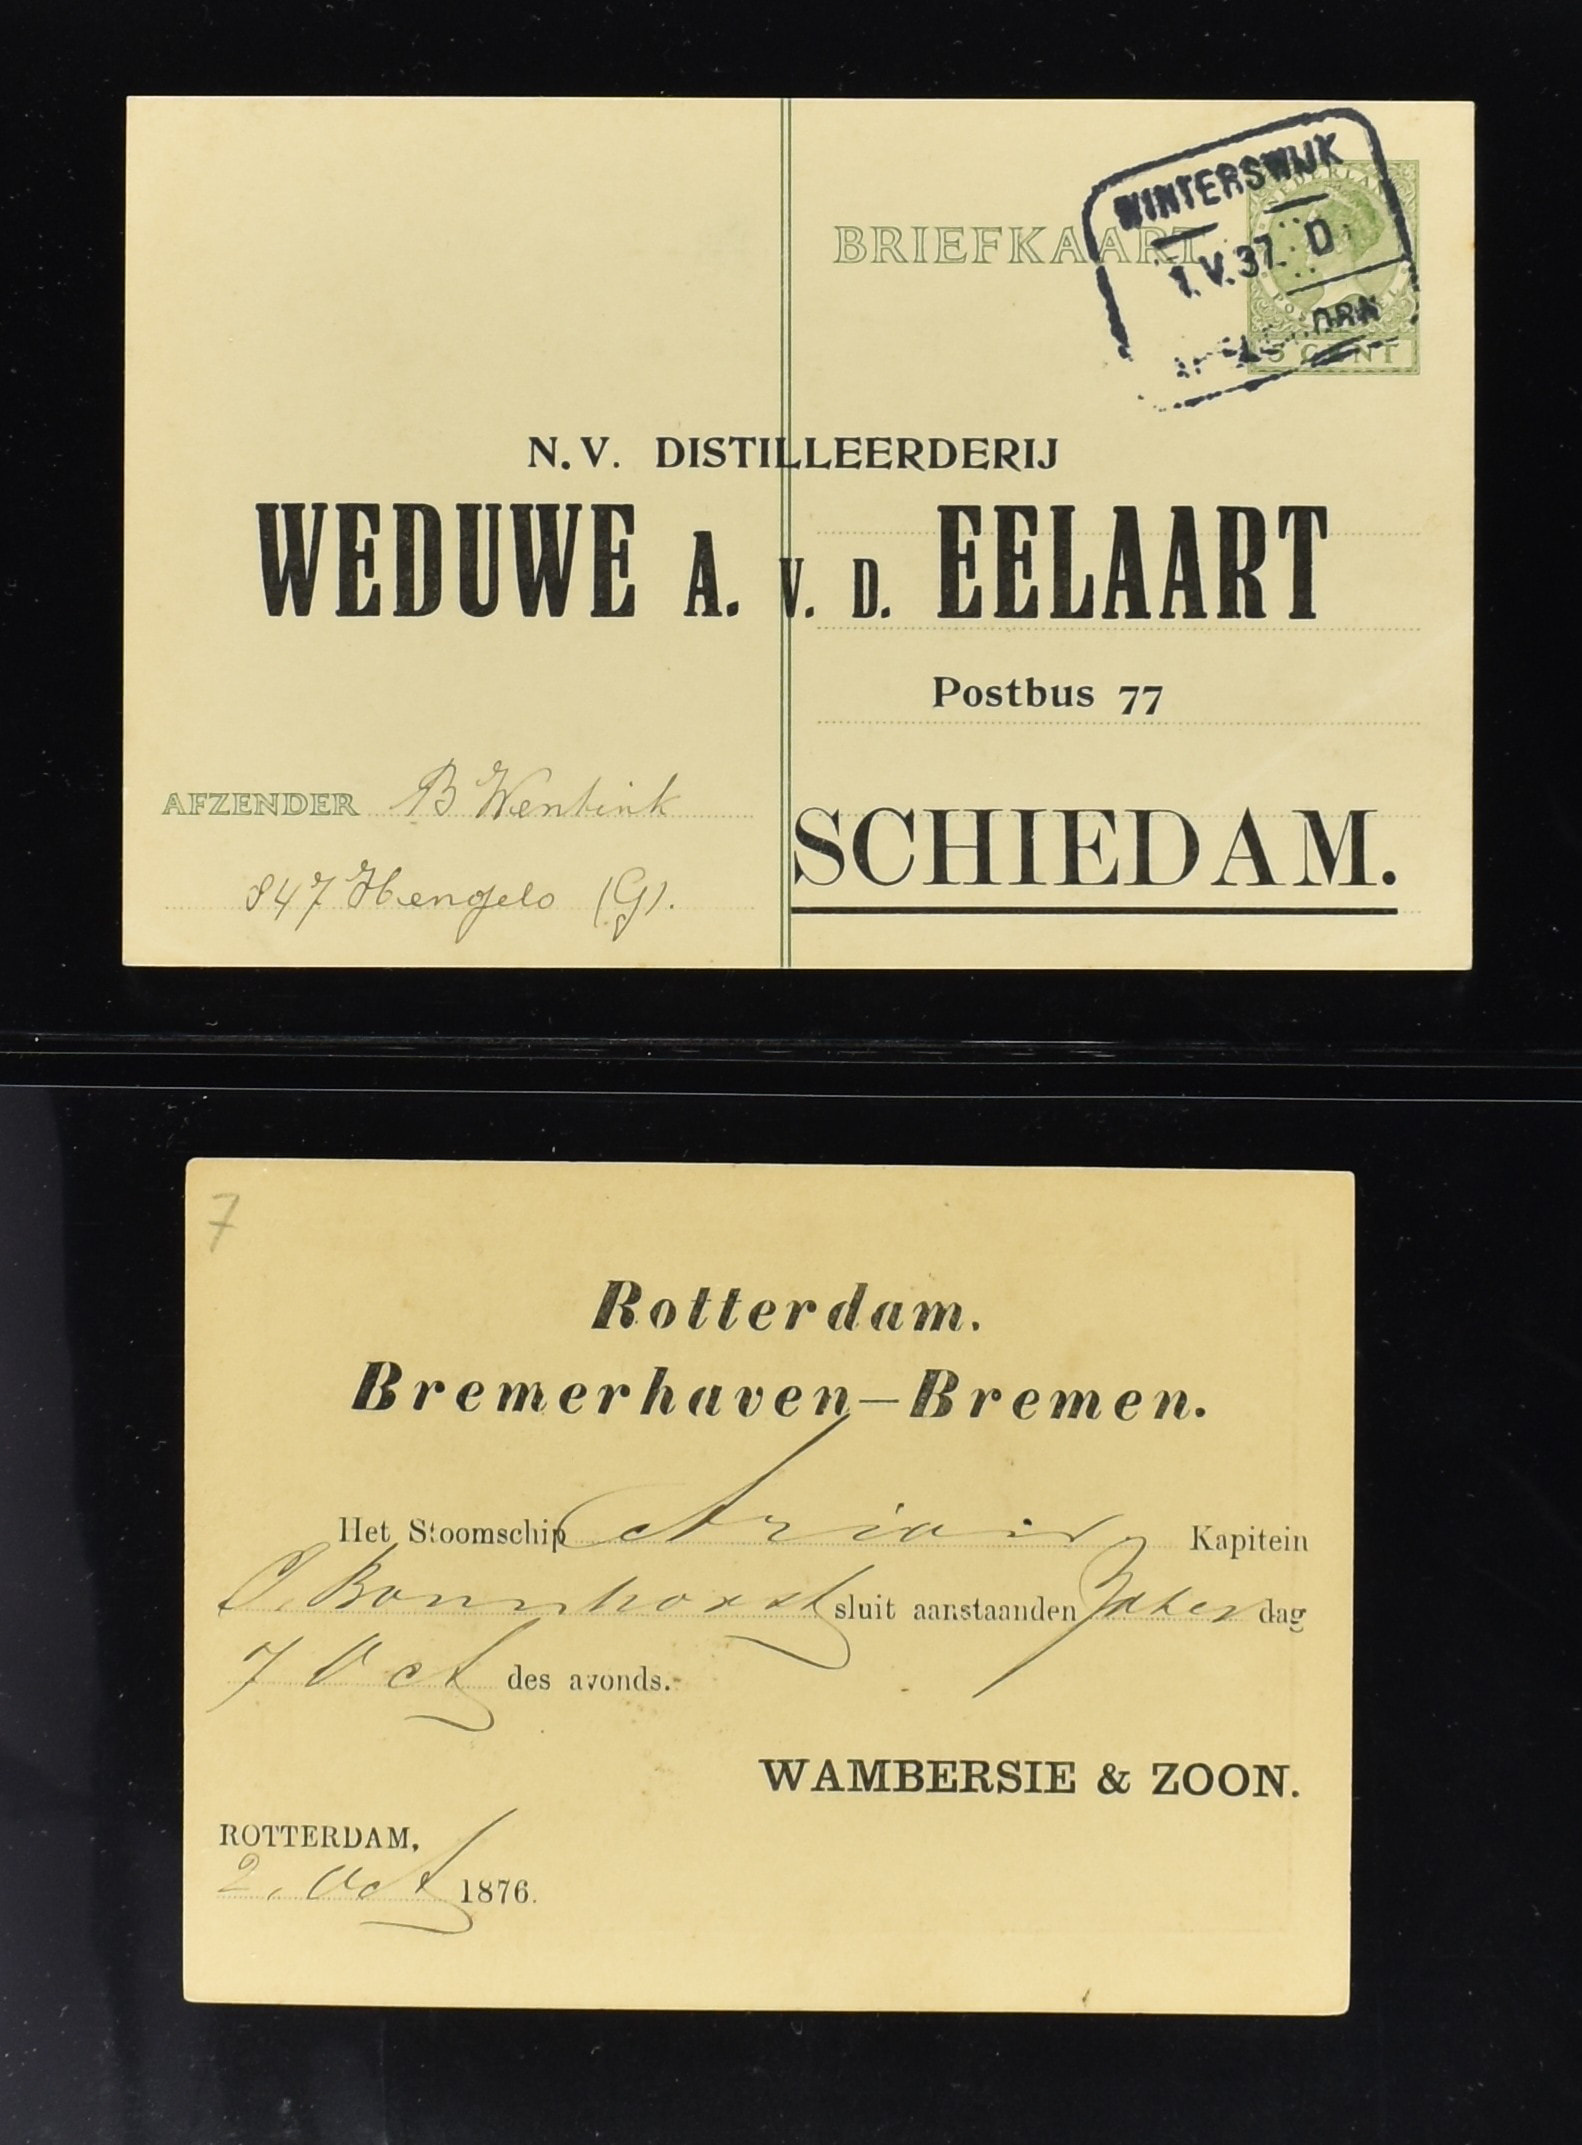 BRIEFKAART
WINTERSWIJK
1.V.37. D
NEDERLAND
5 CENT
N.V. DISTILLEERDERIJ
WEDUWE A. V. D. EELAART
Postbus 77
SCHIEDAM.
AFZENDER B Wentink
847 Hengelo (G).
7
Rotterdam.
Bremerhaven–Bremen.
Het Stoomschip Kapitein
sluit aanstaanden Zaterdag
7 Oct des avonds.
WAMBERSIE & ZOON.
ROTTERDAM,
2. Oct 1876.